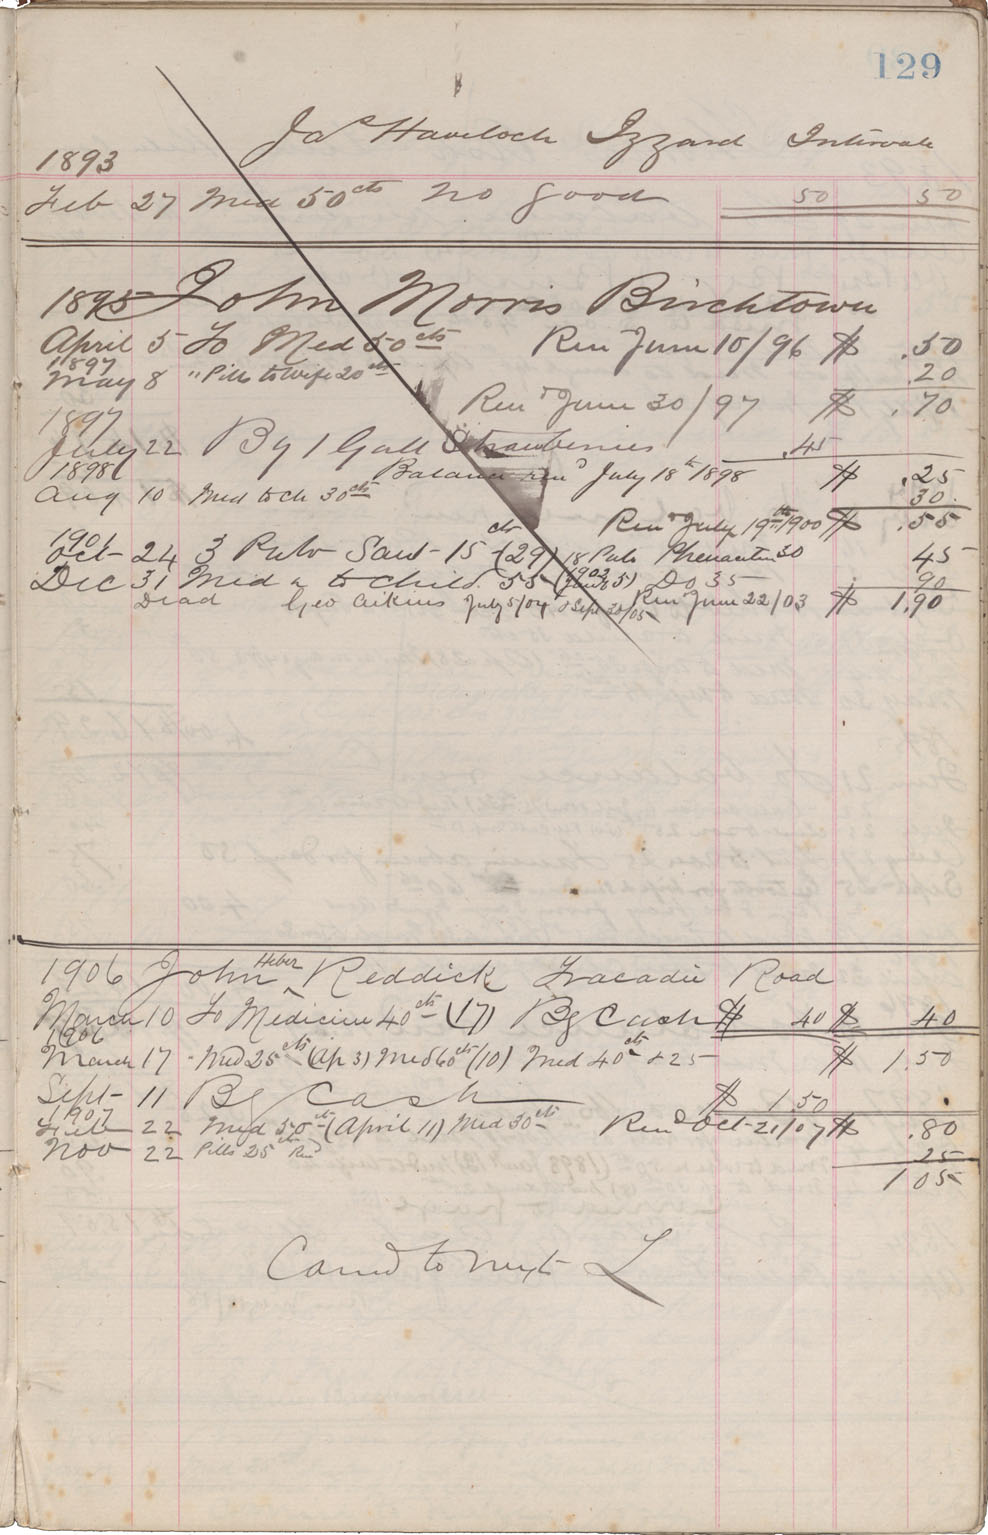 129
Jas Havelock Izzard Intervale
1893
Feb 27 Med 50cts No good 50 50
1895 John Morris Birchtown
April 5 To Med 50cts Ren June 10/96 $ .50
1897
May 8 " Pills to wife 20cts .20
Rend June 30/97 $ .70
1897
July 22 By 1 Gall Strawberries .45
Balance rend July 18th 1898 $ .25
1898
Aug 10 Med to ch 30cts 30
Rend July 19th 1900 $ .55
1901
Oct 24 3 Pulv Saw 15 cts (29) 18 Pulv Phenacetin 30 45
Dec 31 Med to child 55 (1903 5) Do 35 90
Dead Geo Aikins July 5/04 Sept 30/05 Ren June 22/03 $ 1.90
1906 John Heber Reddick Tracadie Road
March 10 To Medicine 40cts (17) By Cash $ 40 $ 40
1906
March 17 " Med 25cts (Ap 3) Med 60cts (10) Med 40cts + 25 $ 1.50
Sept 11 By Cash $ 1.50
1907
Feb 22 Med 50cts (April 11) Med 30cts Rend Oct 21/07 $ .80
Nov 22 Pills 25cts Rend 25
1 05
Carrd to next L